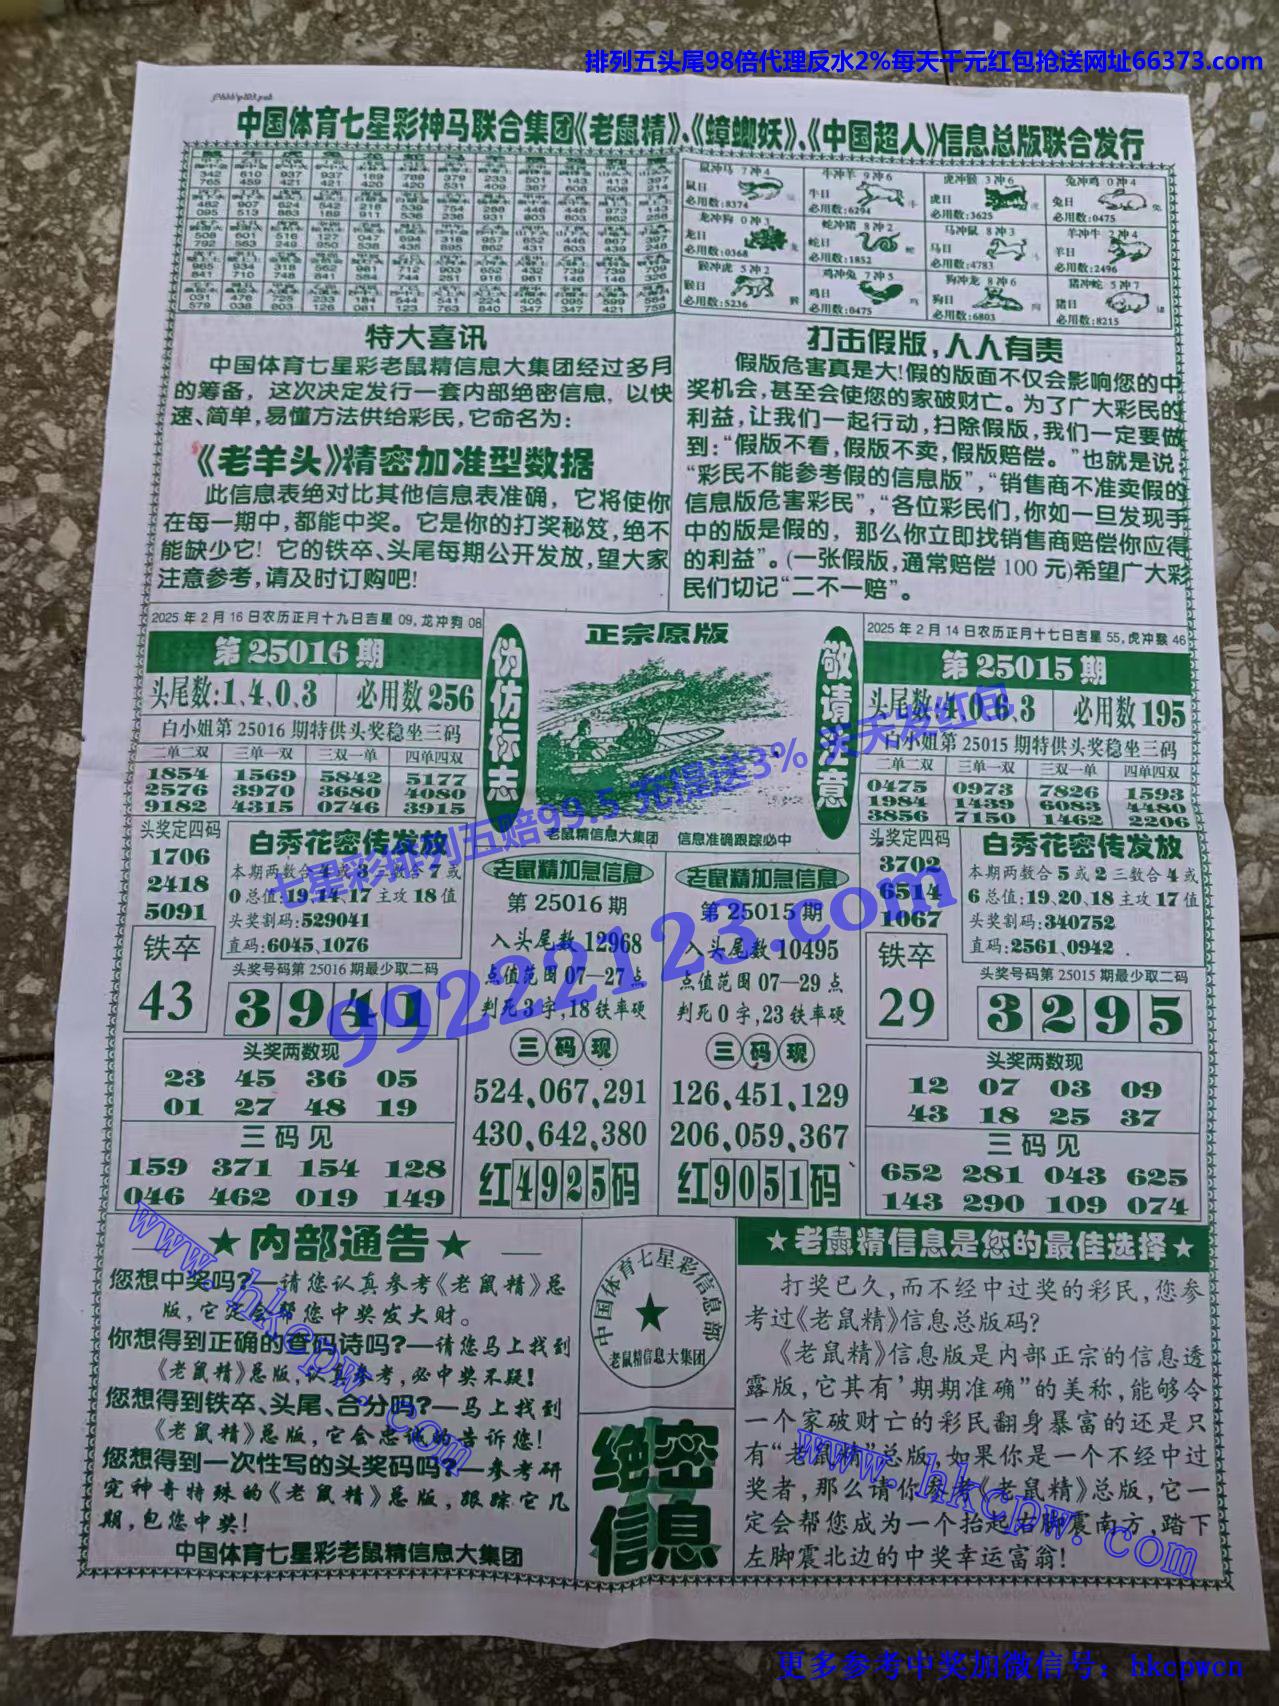 排列五头尾98倍代理反水2%每天千元红包抢送网址66373.com
中国体育七星彩神马联合集团《老鼠精》、《蟑螂妖》、《中国超人》信息总版联合发行
鼠冲马 7冲4
鼠日
必用数:8374
牛冲羊 9冲6
牛日
必用数:6294
虎冲猴 3冲6
虎日
必用数:3625
兔冲鸡 0冲4
兔日
必用数:0475
龙冲狗 0冲3
龙日
必用数:0368
蛇冲猪 8冲2
蛇日
必用数:1852
马冲鼠 8冲3
马日
必用数:4783
羊冲牛 2冲4
羊日
必用数:2496
猴冲虎 5冲2
猴日
必用数:5236
鸡冲兔 7冲5
鸡日
必用数:0475
狗冲龙 8冲6
狗日
必用数:6803
猪冲蛇 5冲7
猪日
必用数:8215
特大喜讯
中国体育七星彩老鼠精信息大集团经过多月
的筹备，这次决定发行一套内部绝密信息，以快
速、简单，易懂方法供给彩民，它命名为：
《老羊头》精密加准型数据
此信息表绝对比其他信息表准确，它将使你
在每一期中，都能中奖。它是你的打奖秘笈，绝不
能缺少它！它的铁卒、头尾每期公开发放，望大家
注意参考，请及时订购吧！
打击假版，人人有责
假版危害真是大！假的版面不仅会影响您的中
奖机会，甚至会使您的家破财亡。为了广大彩民的
利益，让我们一起行动，扫除假版，我们一定要做
到：“假版不看，假版不卖，假版赔偿。”也就是说，
“彩民不能参考假的信息版”，“销售商不准卖假的
信息版危害彩民”，“各位彩民们，你如一旦发现手
中的版是假的，那么你立即找销售商赔偿你应得
的利益”。(一张假版，通常赔偿100元)希望广大彩
民们切记“二不一赔”。
2025年2月16日农历正月十九日吉星09,龙冲狗08
第25016期
头尾数:1、4、0、3
必用数256
白小姐第25016期特供头奖稳坐三码
二单二双 三单一双 三双一单 四单四双
1854 1569 5842 5177
2576 3970 3680 4080
9182 4315 0746 3915
头奖定四码
1706
2418
5091
铁卒
43
白秀花密传发放
本期两数合4或3三数合7或
0总值:19、14、17主攻18值
头奖割码:529041
直码:6045、1076
头奖号码第25016期最少取二码
3941
头奖两数现
23 45 36 05
01 27 48 19
三码见
159 371 154 128
046 462 019 149
伪仿标志
正宗原版
敬请注意
老鼠精信息大集团 信息准确跟踪必中
老鼠精加急信息
第25016期
入头尾数12968
点值范围07—27点
判死3字,18铁率硬
三码现
524、067、291
430、642、380
红4925码
老鼠精加急信息
第25015期
入头尾数10495
点值范围07—29点
判死0字,23铁率硬
三码现
126、451、129
206、059、367
红9051码
2025年2月14日农历正月十七日吉星55,虎冲猴46
第25015期
头尾数:4、0、6、3
必用数195
白小姐第25015期特供头奖稳坐三码
二单二双 三单一双 三双一单 四单四双
0475 0973 7826 1593
1984 1439 6083 4480
3856 7150 1462 2206
头奖定四码
3702
6514
1067
铁卒
29
白秀花密传发放
本期两数合5或2三数合4或
6总值:19、20、18主攻17值
头奖割码:340752
直码:2561、0942
头奖号码第25015期最少取二码
3295
头奖两数现
12 07 03 09
43 18 25 37
三码见
652 281 043 625
143 290 109 074
七星彩排列五赔99.5 充提送3% 天天发红包
99222123.com
★内部通告★
您想中奖吗？—请您认真参考《老鼠精》总
版，它定会帮您中奖发大财。
你想得到正确的查码诗吗？—请您马上找到
《老鼠精》总版，认真参考，必中奖不疑！
您想得到铁卒、头尾、合分吗？—马上找到
《老鼠精》总版，它会忠诚的告诉您！
您想得到一次性写的头奖码吗？—参考研
究神奇特殊的《老鼠精》总版，跟踪它几
期，包您中奖！
中国体育七星彩老鼠精信息大集团
中国体育七星彩信息部
老鼠精信息大集团
绝密
信息
★老鼠精信息是您的最佳选择★
打奖已久，而不经中过奖的彩民，您参
考过《老鼠精》信息总版码？
《老鼠精》信息版是内部正宗的信息透
露版，它其有’期期准确”的美称，能够令
一个家破财亡的彩民翻身暴富的还是只
有“老鼠精”总版，如果你是一个不经中过
奖者，那么请你参考《老鼠精》总版，它一
定会帮您成为一个抬起右脚震南方，踏下
左脚震北边的中奖幸运富翁！
www.hkcpw.com
www.hkcpw.com
更多参考中奖加微信号：hkcpwcn